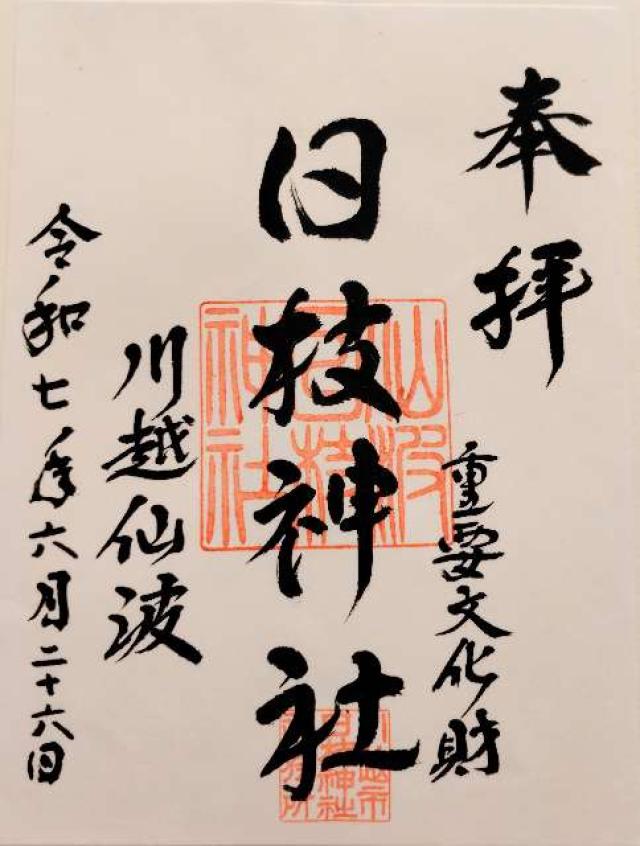 奉拝
重要文化財
日枝神社
川越仙波
令和七年六月二十六日
仙波
日枝
神社